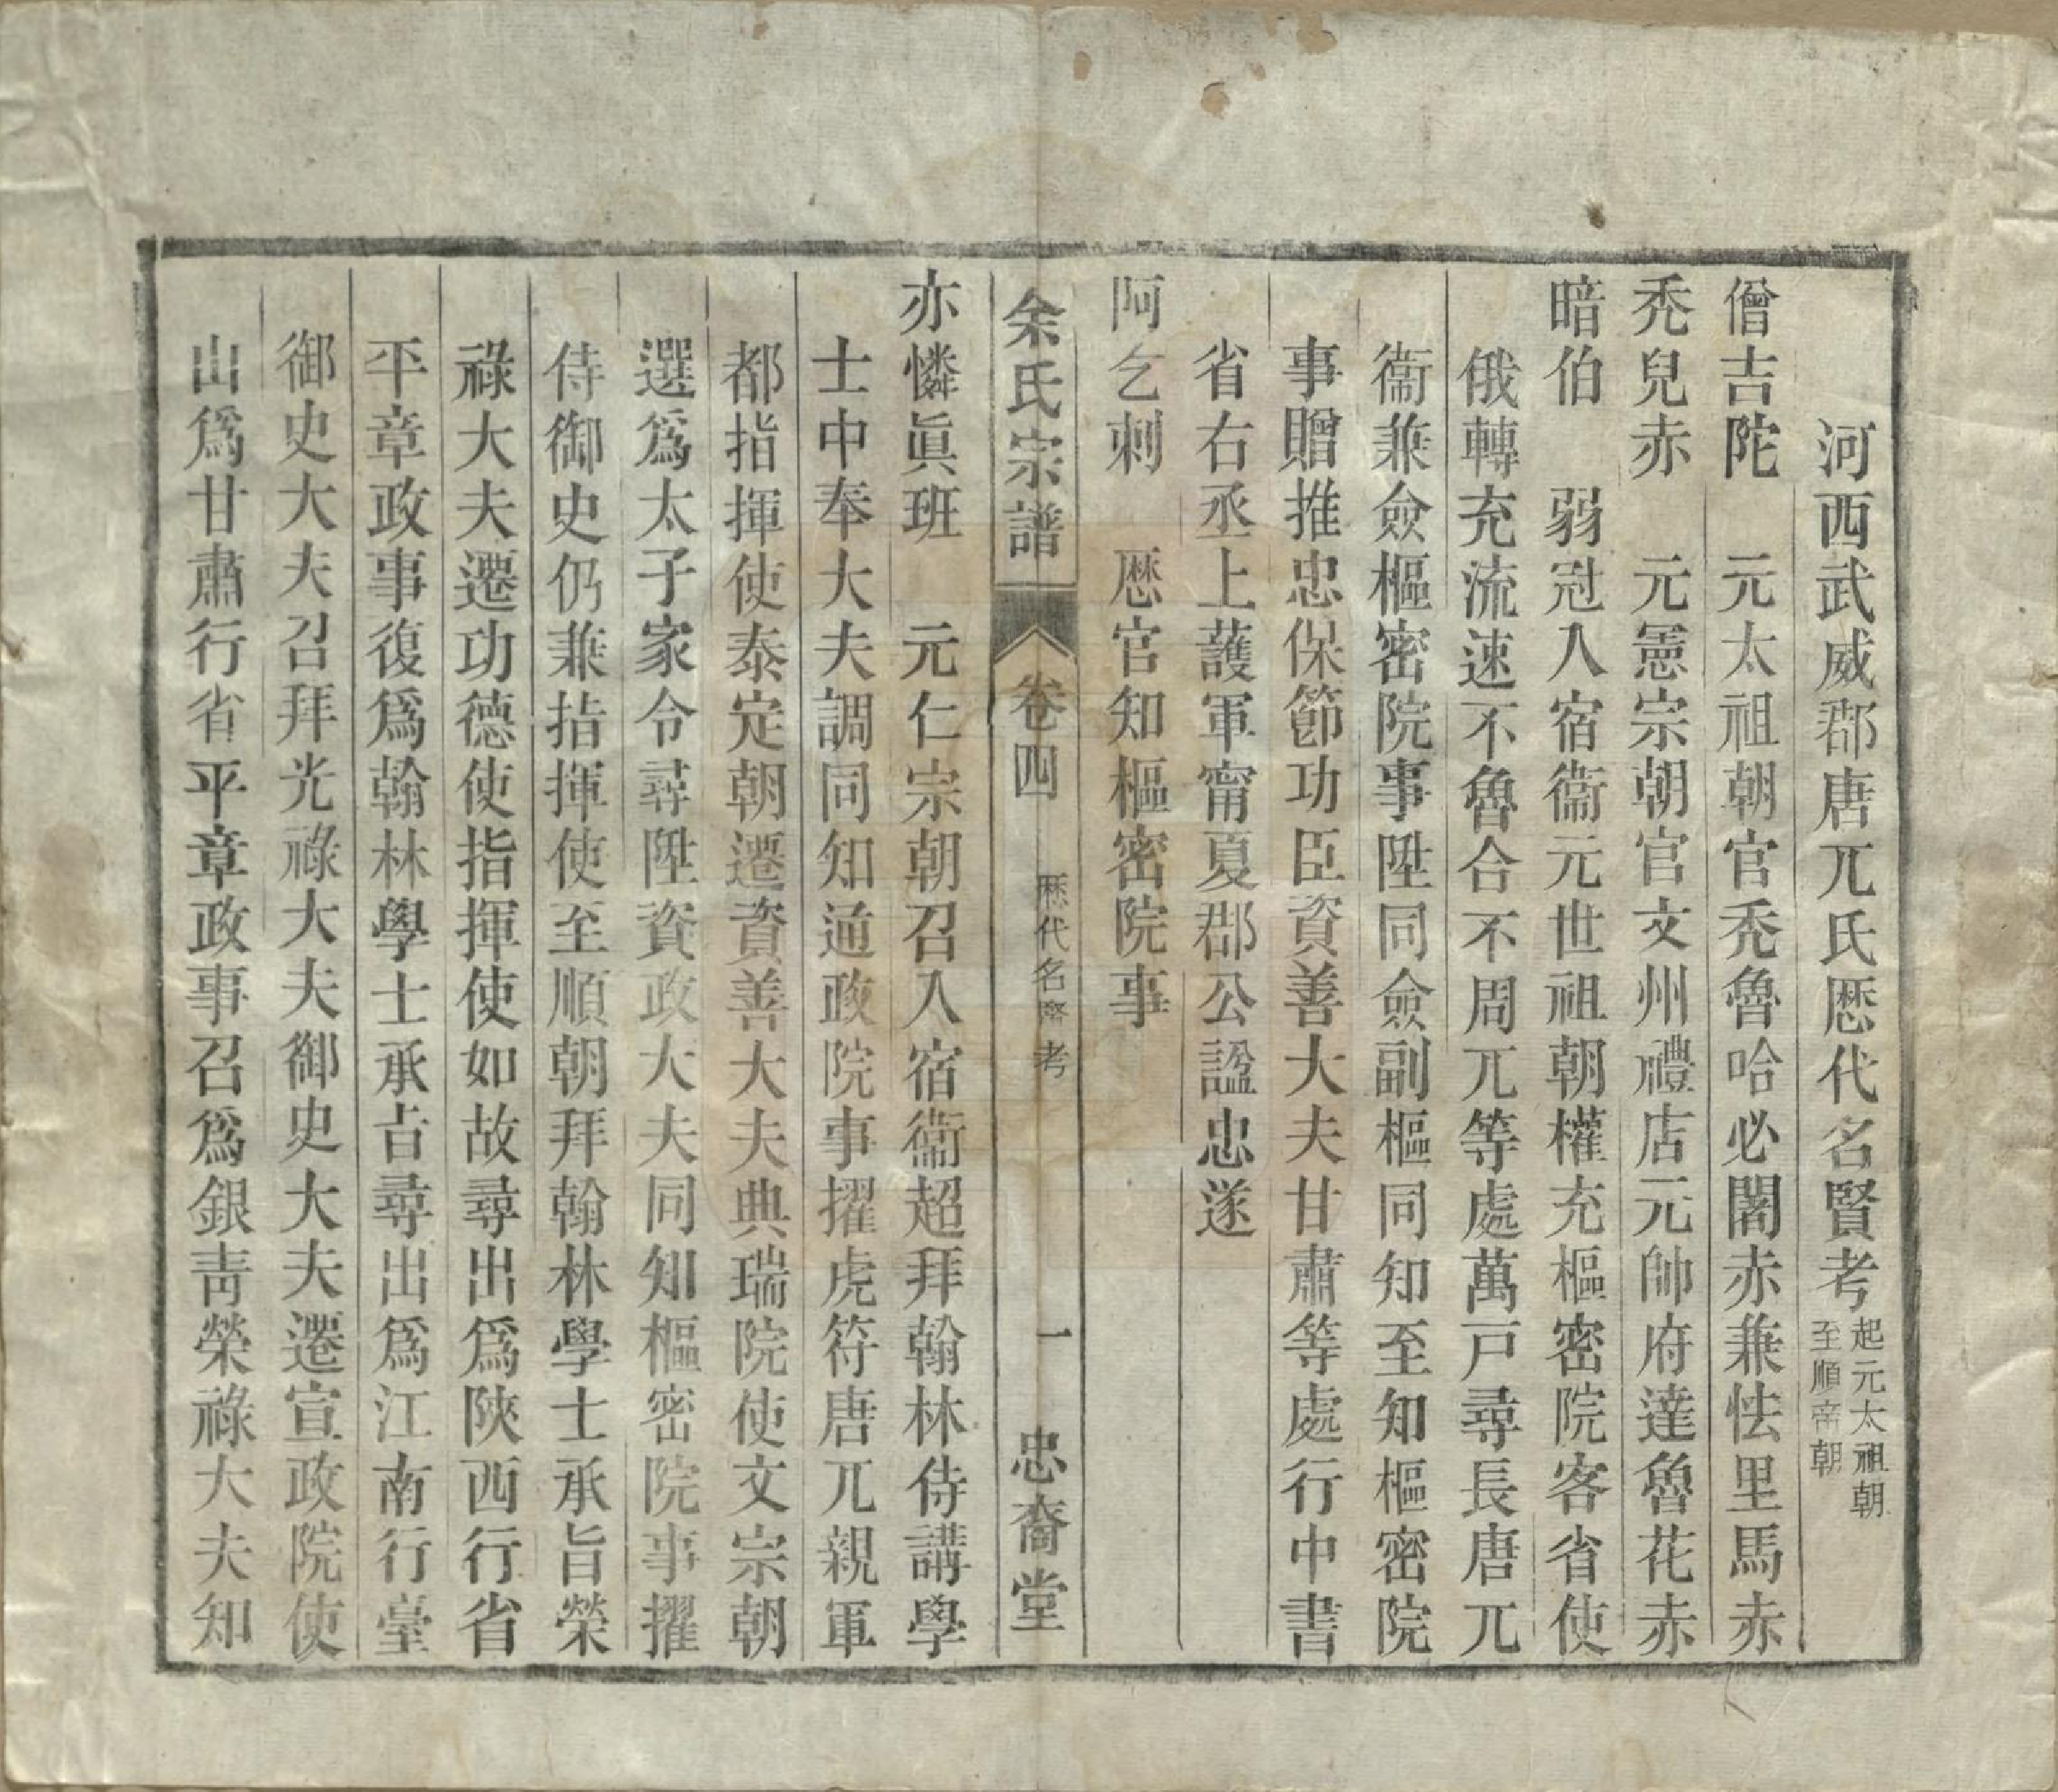 河西武威郡唐兀氏歷代名賢考起元太祖朝至順帝朝
僧吉陀 元太祖朝官禿魯哈必闍赤兼怯里馬赤
禿兒赤 元憲宗朝官文州禮店元帥府達魯花赤
暗伯 弱冠入宿衞元世祖朝權充樞密院客省使
俄轉充流速不魯合不周兀等處萬戸尋長唐兀
衞兼僉樞密院事陞同僉副樞同知至知樞密院
事贈推忠保節功臣資善大夫甘肅等處行中書
省右丞上護軍甯夏郡公諡忠遂
阿乞剌 歷官知樞密院事
余氏宗譜 卷四 歷代名賢考 一 忠裔堂
亦憐眞班 元仁宗朝召入宿衞超拜翰林侍講學
士中奉大夫調同知通政院事擢虎符唐兀親軍
都指揮使泰定朝遷資善大夫典瑞院使文宗朝
選爲太子家令尋陞資政大夫同知樞密院事擢
侍御史仍兼指揮使至順朝拜翰林學士承旨榮
祿大夫遷功德使指揮使如故尋出爲陝西行省
平章政事復爲翰林學士承旨尋出爲江南行臺
御史大夫召拜光祿大夫御史大夫遷宣政院使
出爲甘肅行省平章政事召爲銀靑榮祿大夫知